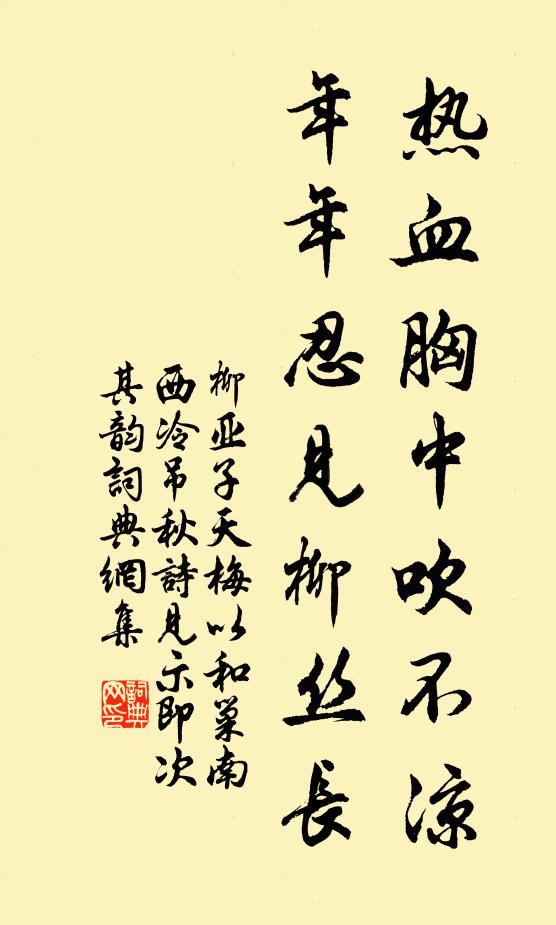 热血胸中吹不凉
年年忍见柳丝長
柳亚子天梅以和巢南
西泠吊秋詩見示即次
其韵詞典網集
詞典網印